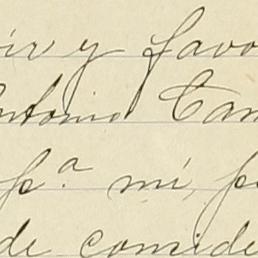 ir y favo
Antonio Cam
pª mi, pe
de conside